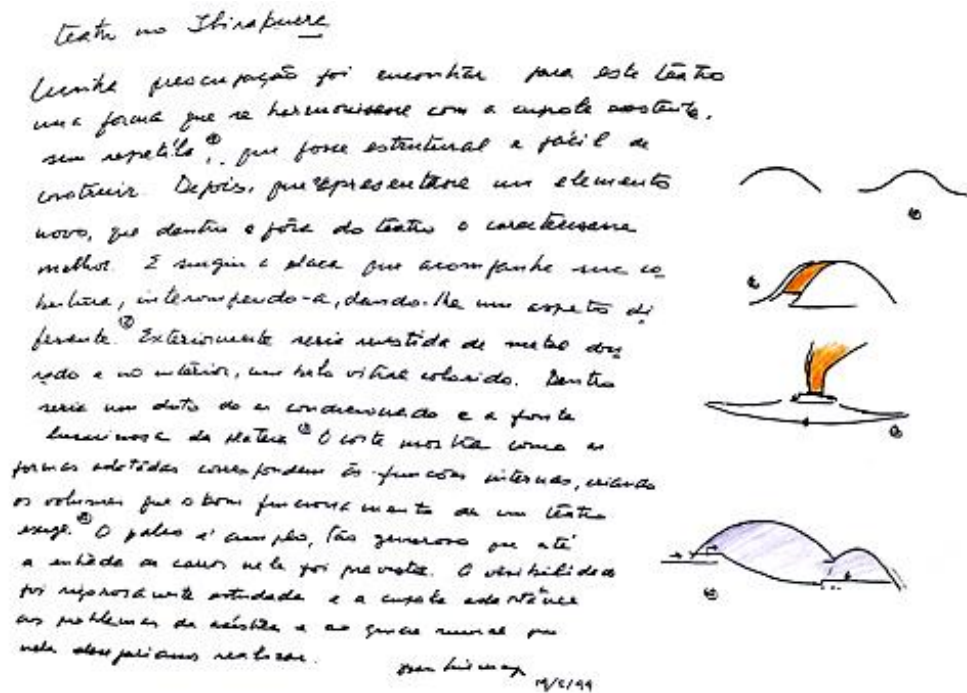 teatro no Ibirapuera
Minha preocupação foi encontrar para este teatro
uma forma que se harmonisasse com a cupola existente,
sem repetila ①, que fosse estrutural e fácil de
construir. Depois, que representasse um elemento
novo, que dentro e fóra do teatro o caracterisasse
melhor. E surgiu a placa que acompanha sua co
bertura, interrompendo-a, dando-lhe um aspeto di
ferente. ② Exteriormente seria revestida de metal dou
rado e no interior, um belo vitral colorido. Dentro
seria um duto de ar condicionado e a fonte
luminosa da plateia ③ O corte mostra como as
formas adotadas correspondem às funcões internas, criando
os volumes que o bom funcionamento de um teatro
exige. ④ O palco é amplo, tão generoso que até
a entrada de carros nele foi prevista. A visibilidade
foi rigorosamente estudada e a cupola
aos problemas da acústica e ao mural que
nela desejariamos realizar.
Oscar Niemeyer